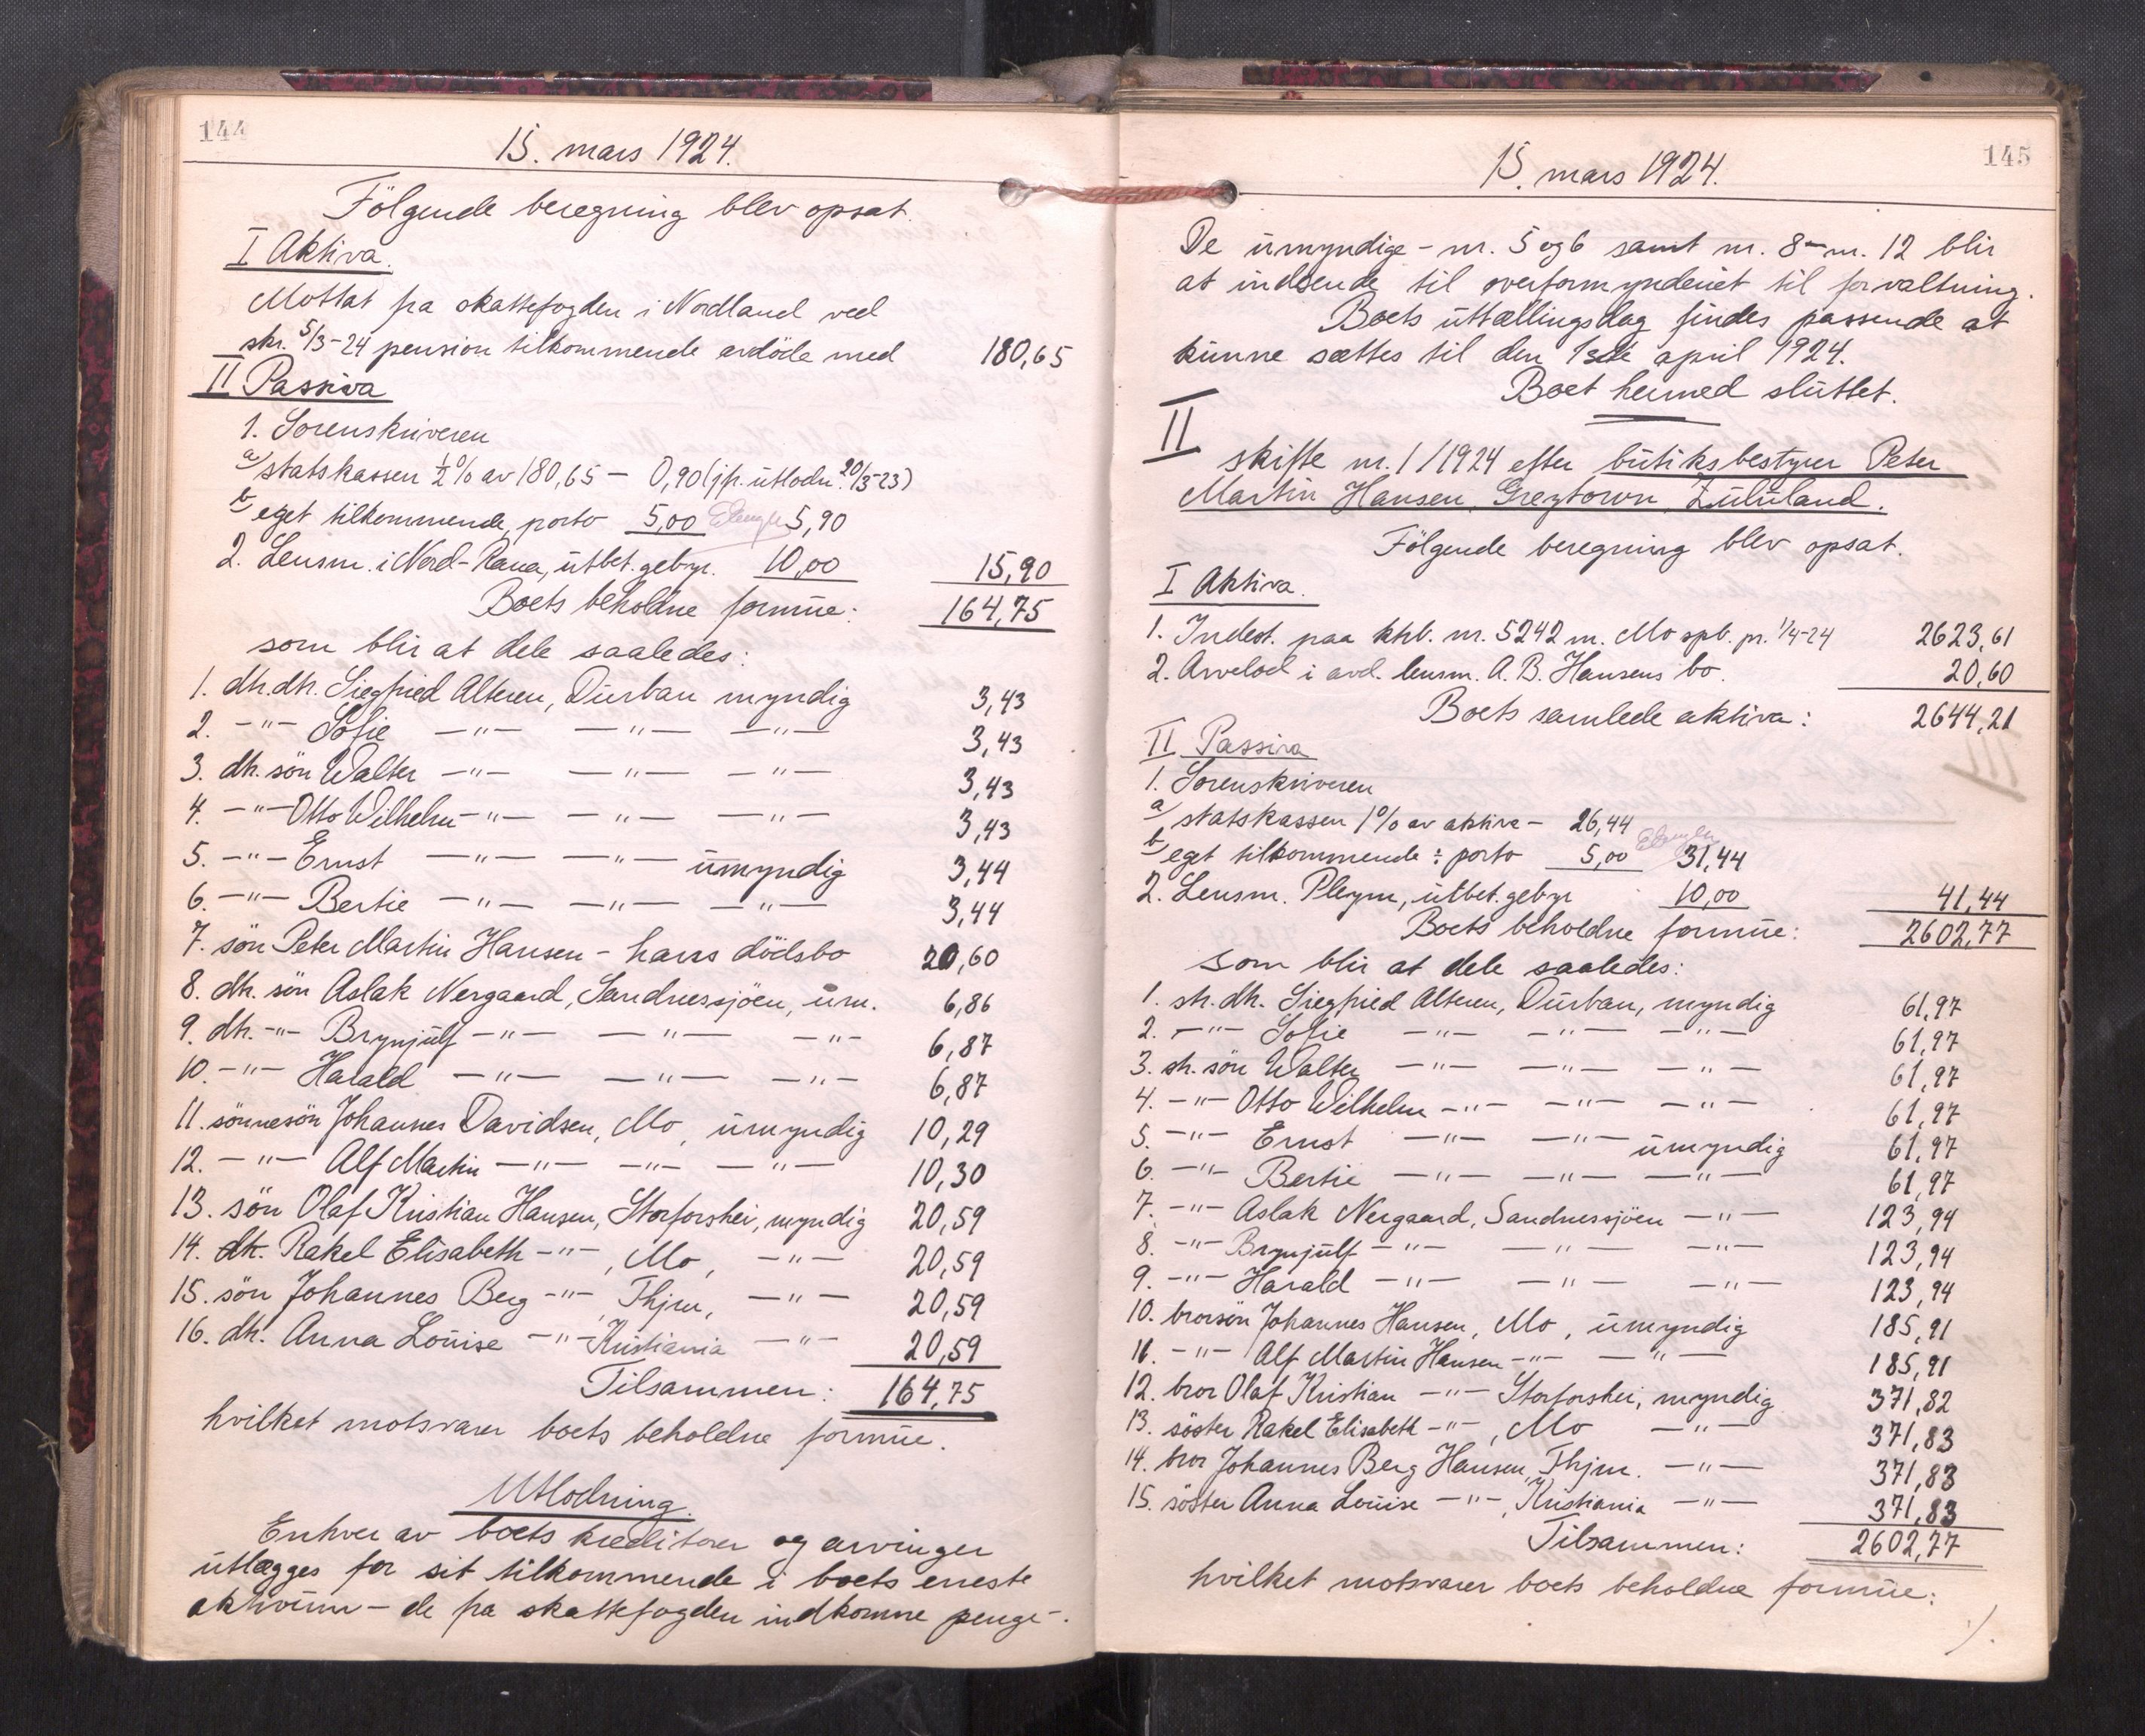 144
15. mars 1924.
Følgende beregning blev opsat.
I Aktiva.
Mottat fra skattefogden i Nordland ved
skr. 5/3-24 pension tilkommende avdöde med 180,65
II Passiva
1. Sorenskriveren
a) statskassen ½% av 180,65 — 0,90 (jfr. utlodn. 20/3-23)
b) eget tilkommende, porto 5,00 5,90
2. Lensm. i Nord-Rana, utbet. gebyr. 10,00 15,90
Boets beholdne formue: 164,75
som blir at dele saaledes:
1. dh. dh. Siegfried Alteren, Durban myndig 3,43
2. -"- Sofie -"- -"- -"- 3,43
3. dh. sön Walter -"- -"- -"- 3,43
4. -"- Otto Wilhelm -"- -"- -"- 3,43
5. -"- Ernst -"- -"- umyndig 3,44
6. -"- Bertie -"- -"- -"- 3,44
7. sön Peter Martin Hansen - hans dödsbo 20,60
8. dh. sön Aslak Nergaard, Sandnessjöen, um. 6,86
9. dh. -"- Brynjulf -"- -"- -"- 6,87
10. -"- Harald -"- -"- -"- 6,87
11. sönnesön Johannes Davidsen, Mo, umyndig 10,29
12. -"- Alf Martin -"- -"- -"- 10,30
13. sön Olaf Kristian Hansen, Storforshei, myndig 20,59
14. dh. Rakel Elisabeth -"-, Mo, -"- 20,59
15. sön Johannes Berg -"- Thjm, -"- 20,59
16. dh. Anna Louise -"- Kristiania -"- 20,59
Tilsammen: 164,75
hvilket motsvarer boets beholdne formue.
Utlodning.
Enhver av boets kreditorer og arvinger
utlægges for sit tilkommende i boets eneste
aktivum - de fra skattefogden indkomne penge -.
145
15. mars 1924.
De umyndige - nr. 5 og 6 samt nr. 8 - nr. 12 blir
at indsende til overformynderiet til forvaltning.
Boets uttællingsdag findes passende at
kunne sættes til den 1ste april 1924.
Boet hermed sluttet.
II
skifte nr. 1/1924 efter butiksbestyrer Peter
Martin Hansen, Greytown, Zululand.
Følgende beregning blev opsat.
I Aktiva.
1. Indest. paa ktrb. nr. 5242 m. Mo spb. pr. 1/4-24 2623,61
2. Arvelod i avd. lensm. A. B. Hansens bo. 20,60
Boets samlede aktiva: 2644,21
II Passiva
1. Sorenskriveren
a) statskassen 1% av aktiva - 26,44
b) eget tilkommende : porto 5,00 31,44
2. Lensm. Pleym, utbet. gebyr 10,00 41,44
Boets beholdne formue: 2602,77
som blir at dele saaledes:
1. sh. dh. Siegfried Alteren, Durban, myndig 61,97
2. -"- Sofie -"- -"- -"- 61,97
3. sh. sön Walter -"- -"- -"- 61,97
4. -"- Otto Wilhelm -"- -"- -"- 61,97
5. -"- Ernst -"- -"- umyndig 61,97
6. -"- Bertie -"- -"- -"- 61,97
7. -"- Aslak Nergaard, Sandnessjöen -"- 123,94
8. -"- Brynjulf -"- -"- -"- 123,94
9. -"- Harald -"- -"- -"- 123,94
10. brorsön Johannes Hansen, Mo, umyndig 185,91
11. -"- Alf Martin Hansen -"- -"- 185,91
12. bror Olaf Kristian -"- Storforshei, myndig 371,82
13. söster Rakel Elisabeth -"-, Mo -"- 371,83
14. bror Johannes Berg Hansen, Thjm. -"- 371,83
15. söster Anna Louise -"-, Kristiania -"- 371,83
Tilsammen: 2602,77
hvilket motsvarer boets beholdne formue: